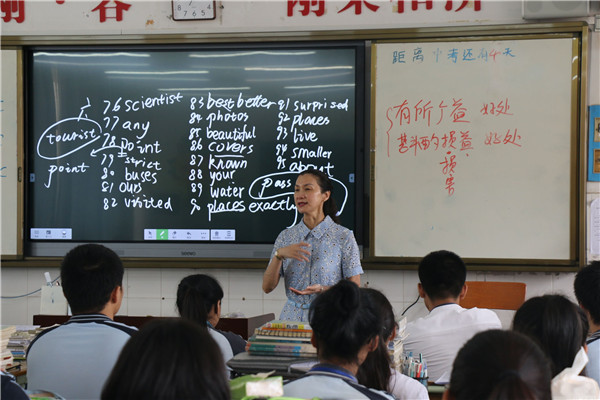 距离中考还有4天
tourist
point
76 scientist
77 any
78 point
79 strict
80 buses
81 ours
82 visited
83 best better
84 photos
85 beautiful
86 covers
87 known
88 your
89 water
90 places exactly
91 surprised
92 places
93 live
94 smaller
95 about
pass
有所 益 好处
的损益 好处
损
害